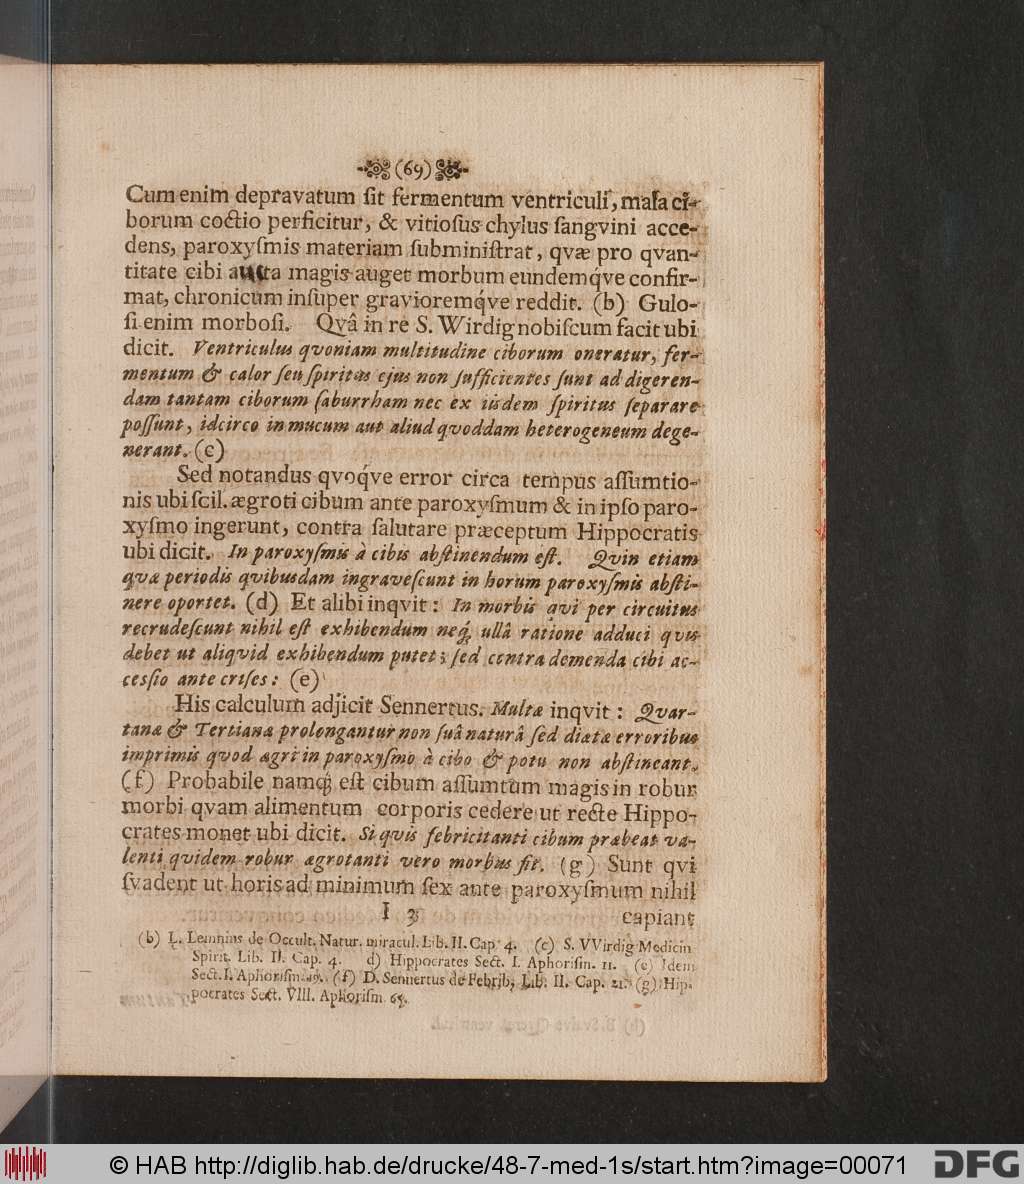 (69)
Cum enim depravatum ſit fermentum ventriculi, mala ci-
borum coctio perficitur, & vitioſus chylus ſangvini acce-
dens, paroxyſmis materiam ſubminiſtrat, qvæ pro qvan-
titate cibi aucta magis auget morbum eundemq́ve confir-
mat, chronicum inſuper gravioremq́ve reddit. (b) Guloſ-
ſi enim morboſi. Qvâ in re S. Wirdig nobiſcum facit ubi
dicit. Ventriculus qvoniam multitudine ciborum oneratur, fer-
mentum & calor ſeu ſpiritus ejus non ſufficientes ſunt ad digeren-
dam tantam ciborum ſaburrham nec ex iisdem ſpiritus ſeparare
poſſunt, idcirco in mucum aut aliud qvoddam heterogeneum dege-
nerant. (c)
Sed notandus qvoq́ve error circa tempus aſſumtio-
nis ubi ſcil. ægroti cibum ante paroxyſmum & in ipſo paro-
xyſmo ingerunt, contra ſalutare præceptum Hippocratis
ubi dicit. In paroxyſmis à cibis abſtinendum eſt. Qvin etiam
qvæ periodis qvibusdam ingraveſcunt in horum paroxyſmis abſti-
nere oportet. (d) Et alibi inqvit: In morbis qvi per circuitus
recrudeſcunt nihil eſt exhibendum neq́; ullâ ratione adduci qvis
debet ut aliqvid exhibendum putet; ſed contra demenda cibi ac-
ceſſio ante criſes: (e)
His calculum adjicit Sennertus. Multæ inqvit: Qvar-
tanæ & Tertianæ prolongantur non ſuâ naturâ ſed diætæ erroribus
imprimis qvod ægri in paroxyſmo à cibo & potu non abſtineant.
(f) Probabile namq́; eſt cibum aſſumtum magis in robur
morbi qvam alimentum corporis cedere ut recte Hippo-
crates monet ubi dicit. Si qvis febricitanti cibum præbeat va-
lenti qvidem robur ægrotanti vero morbus fit. (g) Sunt qvi
ſvadent ut horis ad minimum ſex ante paroxyſmum nihil
I 3 capiant
(b) L. Lemnius de Occult. Natur. miracul. Lib. II. Cap. 4. (c) S. VVirdig Medicin
Spirit. Lib. II. Cap. 4. d) Hippocrates Sect. I. Aphoriſm. 11. (e) Idem
Sect. I. Aphoriſm. 19. (f) D. Sennertus de Febrib. Lib. II. Cap. 21. (g) Hip-
pocrates Sect. VIII. Aphoriſm 65.
© HAB http://diglib.hab.de/drucke/48-7-med-1s/start.htm?image=00071
DFG